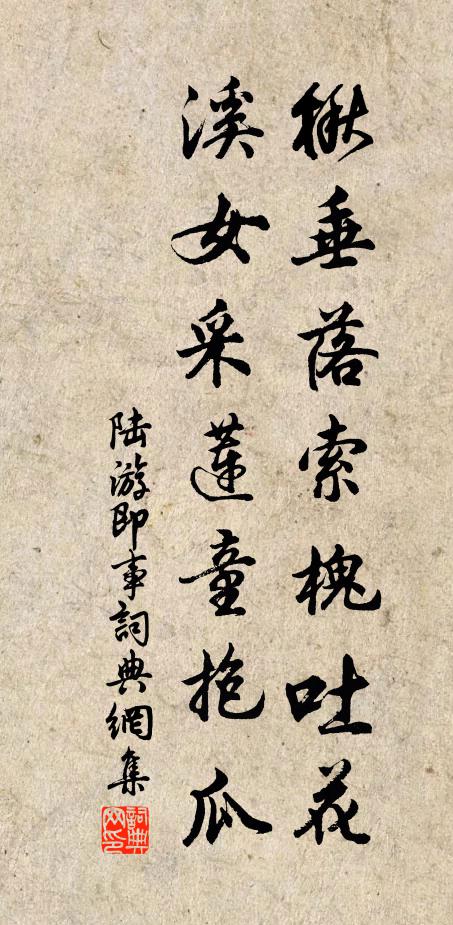 楸垂落索槐吐花
溪女采蓮童抱瓜
陆游即事詞典網集
詞典网印